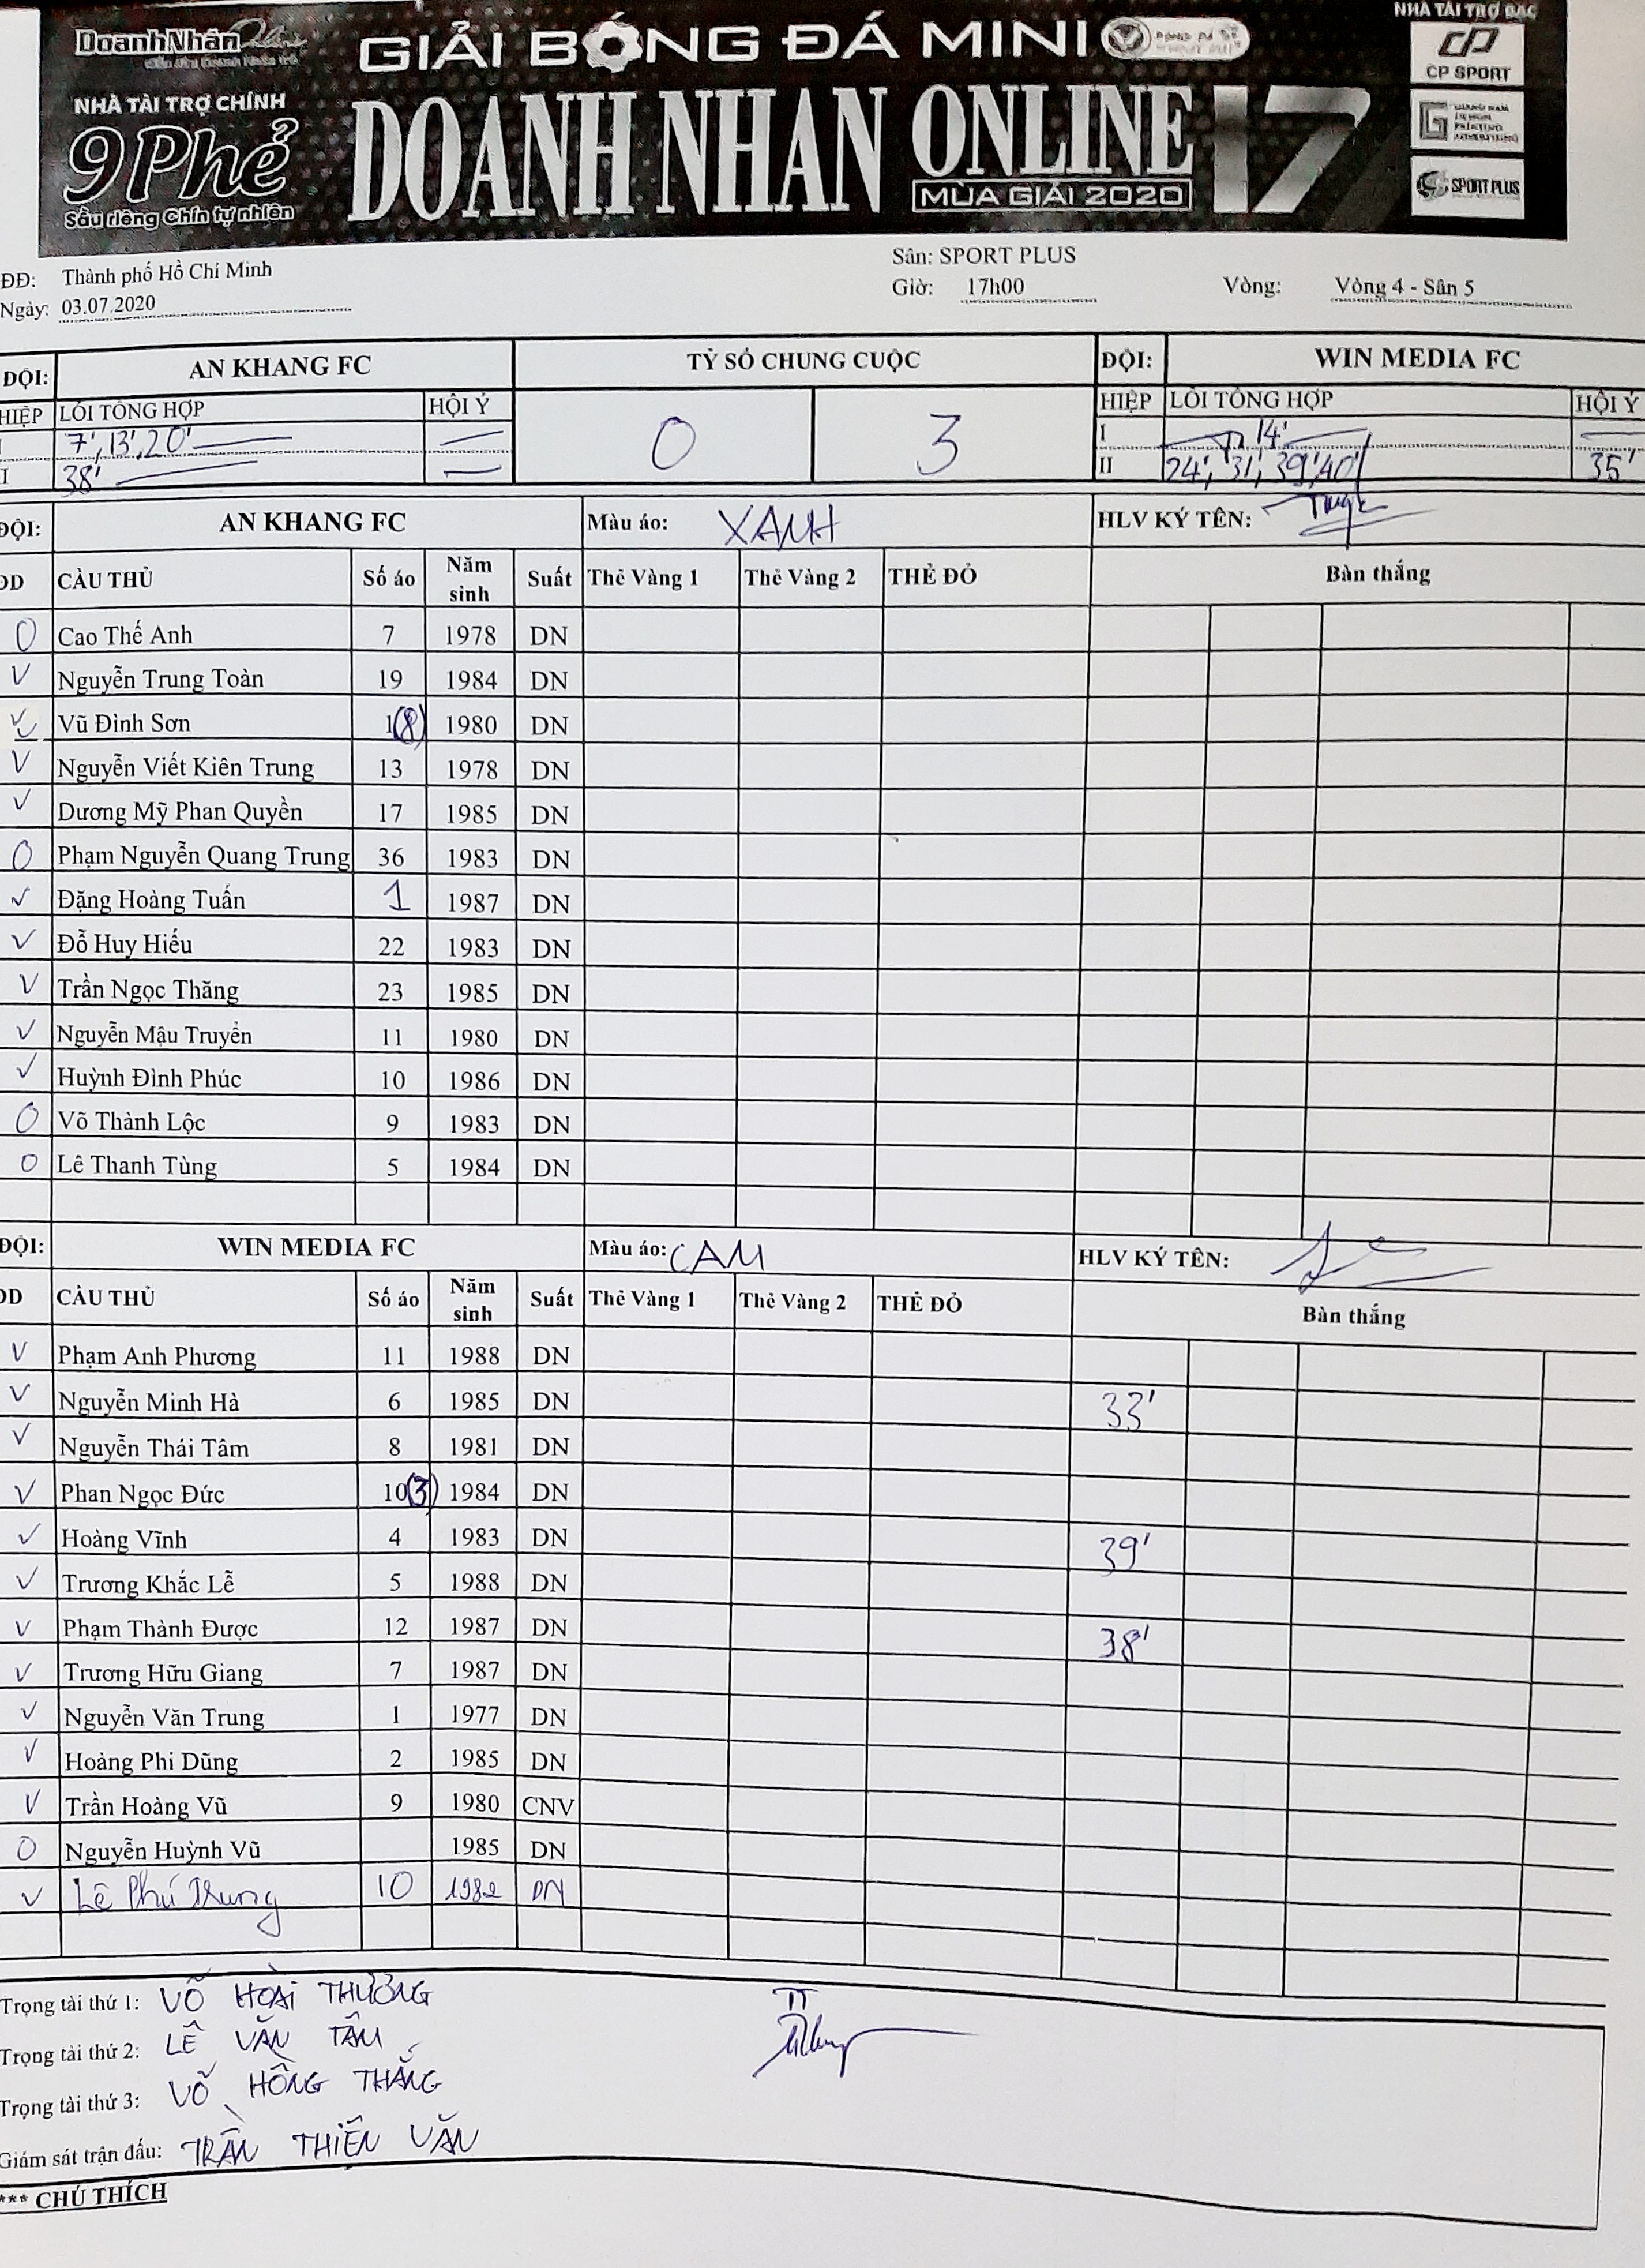 DoanhNhân Online
GIẢI BÓNG ĐÁ MINI
NHÀ TÀI TRỢ BẠC
CP SPORT
NHÀ TÀI TRỢ CHÍNH
9Phẻ
Sầu riêng Chín tự nhiên
DOANH NHAN ONLINE 17
MÙA GIẢI 2020
SPORT PLUS
ĐĐ: Thành phố Hồ Chí Minh Sân: SPORT PLUS
Ngày: 03.07.2020 Giờ: 17h00 Vòng: Vòng 4 - Sân 5
ĐỘI: AN KHANG FC TỶ SỐ CHUNG CUỘC ĐỘI: WIN MEDIA FC
HIỆP LỖI TỔNG HỢP HỘI Ý 0 3 HIỆP LỖI TỔNG HỢP HỘI Ý
I 7', 13', 20' I 14'
I 38' II 24', 31', 39', 40' 35'
ĐỘI: AN KHANG FC Màu áo: XANH HLV KÝ TÊN:
DD CẦU THỦ Số áo Năm sinh Suất Thẻ Vàng 1 Thẻ Vàng 2 THẺ ĐỎ Bàn thắng
O Cao Thế Anh 7 1978 DN
V Nguyễn Trung Toàn 19 1984 DN
V Vũ Đình Sơn 1(8) 1980 DN
V Nguyễn Viết Kiên Trung 13 1978 DN
V Dương Mỹ Phan Quyền 17 1985 DN
O Phạm Nguyễn Quang Trung 36 1983 DN
V Đặng Hoàng Tuấn 1 1987 DN
V Đỗ Huy Hiếu 22 1983 DN
V Trần Ngọc Thăng 23 1985 DN
V Nguyễn Mậu Truyền 11 1980 DN
V Huỳnh Đình Phúc 10 1986 DN
O Võ Thành Lộc 9 1983 DN
O Lê Thanh Tùng 5 1984 DN
ĐỘI: WIN MEDIA FC Màu áo: CAM HLV KÝ TÊN:
DD CẦU THỦ Số áo Năm sinh Suất Thẻ Vàng 1 Thẻ Vàng 2 THẺ ĐỎ Bàn thắng
V Phạm Anh Phương 11 1988 DN
V Nguyễn Minh Hà 6 1985 DN 33'
V Nguyễn Thái Tâm 8 1981 DN
V Phan Ngọc Đức 10(3) 1984 DN
V Hoàng Vĩnh 4 1983 DN 39'
V Trương Khắc Lễ 5 1988 DN
V Phạm Thành Được 12 1987 DN 38'
V Trương Hữu Giang 7 1987 DN
V Nguyễn Văn Trung 1 1977 DN
V Hoàng Phi Dũng 2 1985 DN
V Trần Hoàng Vũ 9 1980 CNV
O Nguyễn Huỳnh Vũ 1985 DN
V Lê Phú Trung 10 1982 DN
Trọng tài thứ 1: VÕ HOÀI THƯƠNG TT
Trọng tài thứ 2: LÊ VĂN TÂM
Trọng tài thứ 3: VÕ HỒNG THẮNG
Giám sát trận đấu: TRẦN THIÊN VĂN
*** CHÚ THÍCH